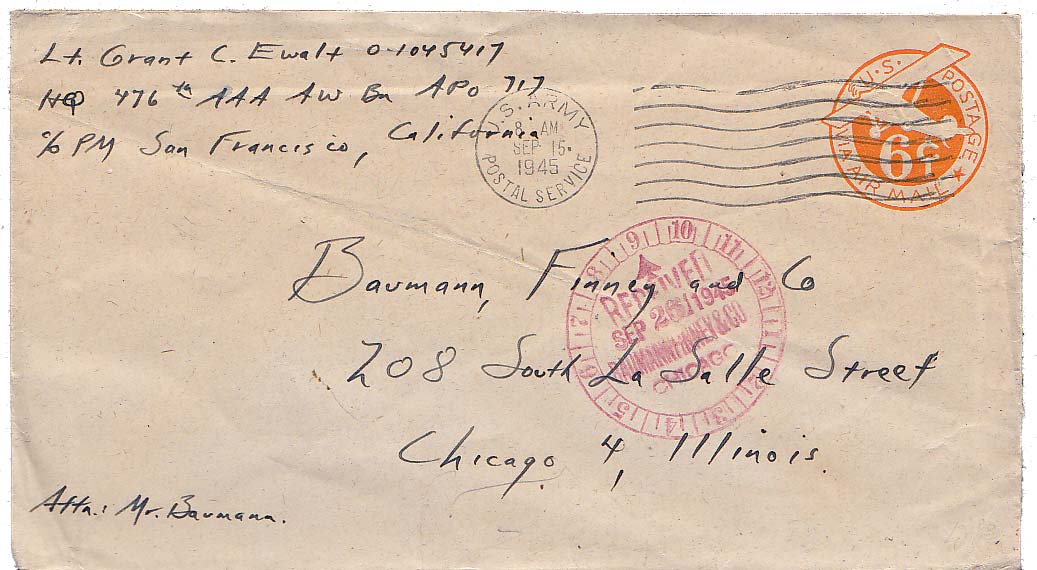 Lt. Grant C. Ewalt O-1045417
HQ 476th AAA AW Bn APO 717
c/o PM San Francisco, California
U.S. ARMY
8 AM
SEP 15
1945
POSTAL SERVICE
U.S. POSTAGE
6¢
VIA AIR MAIL
Baumann, Finney and Co
208 South La Salle Street
Chicago 4, Illinois.
Attn.: Mr. Baumann.
8 9 10 11 12 1 2 3 4 5 6 7
RECEIVED
SEP 26 1945
BAUMANN, FINNEY & CO
CHICAGO